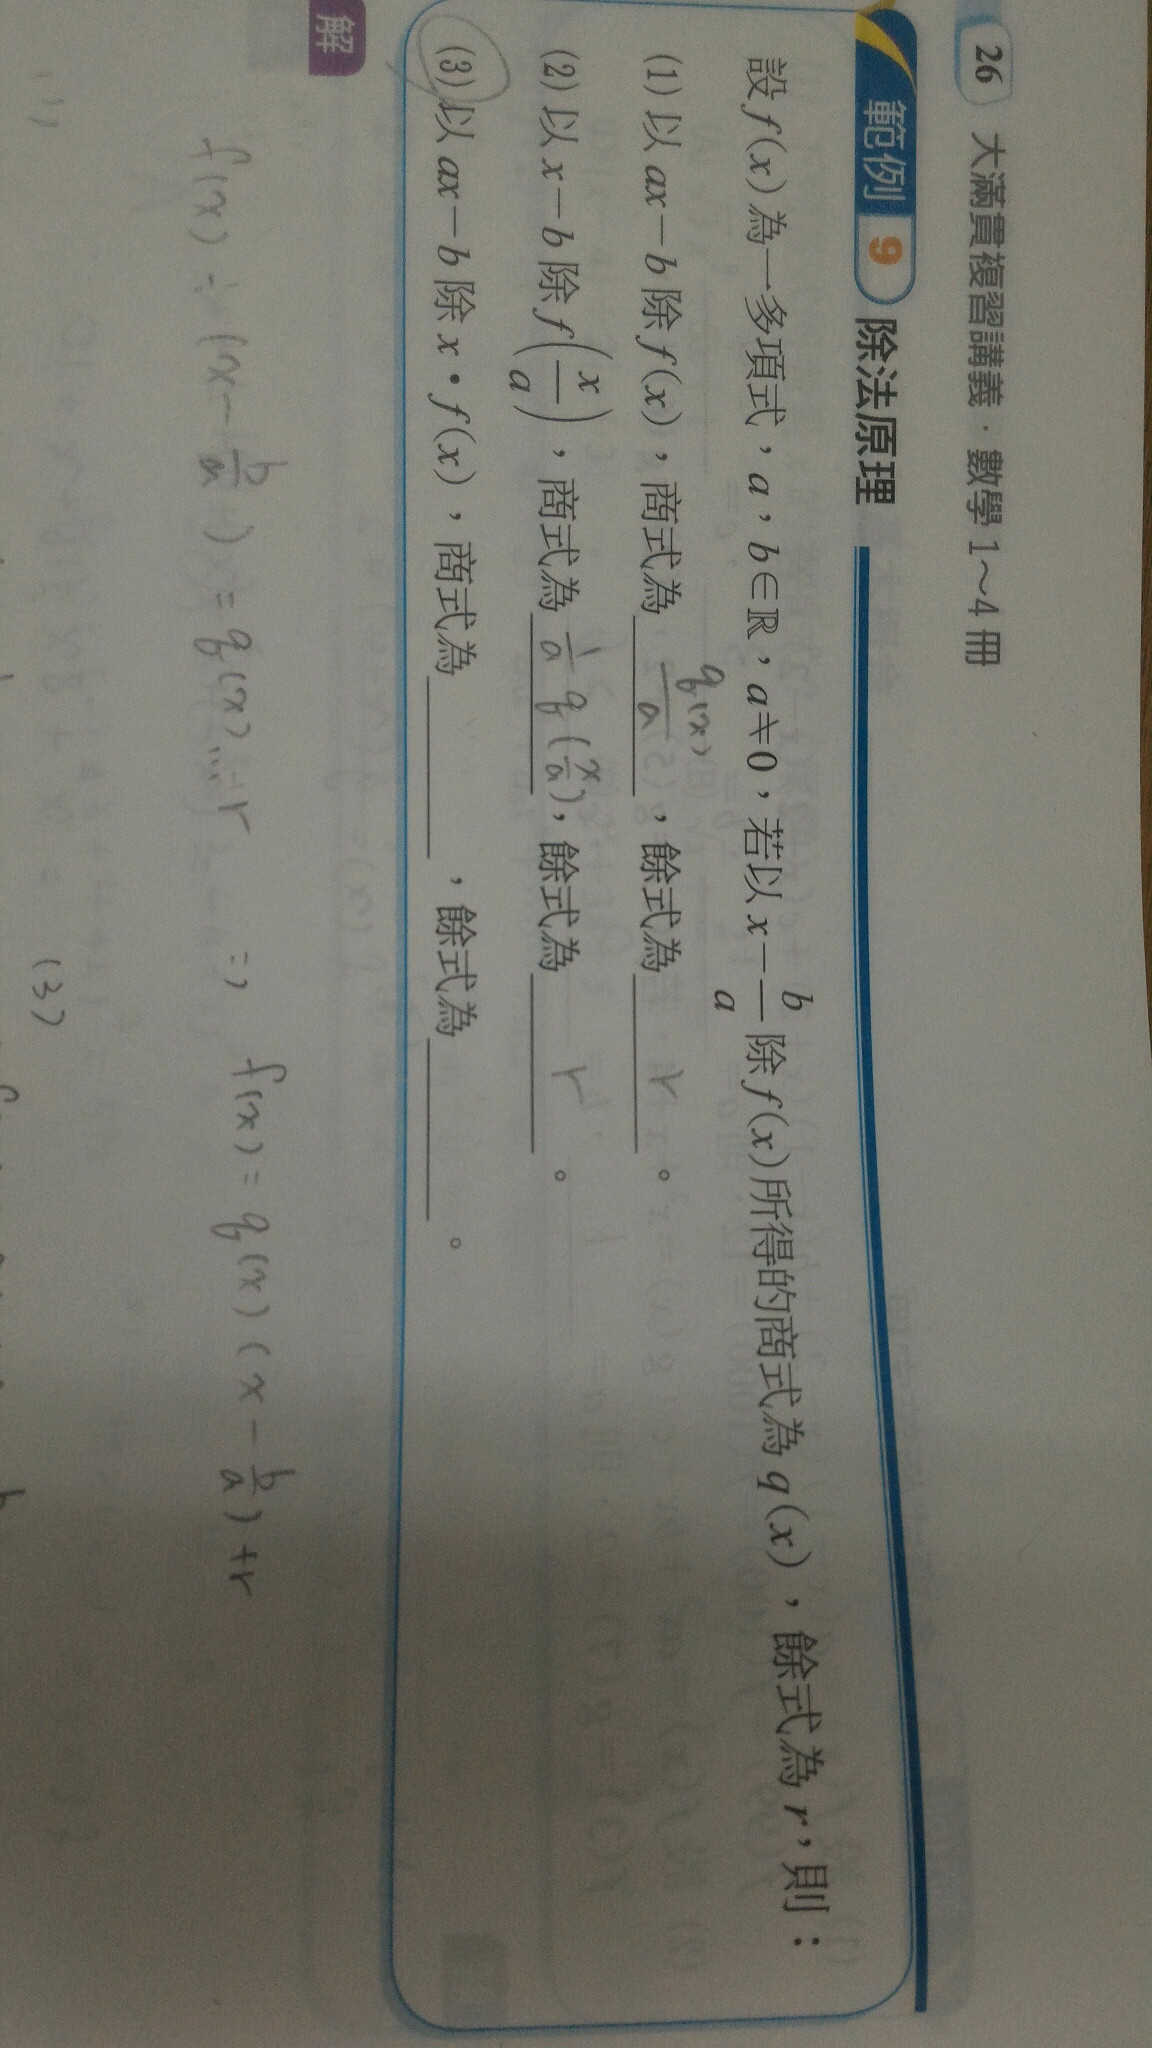 26 大滿貫複習講義．數學1～4冊
範例 9 除法原理
設f(x)為一多項式，a，b∈ℝ，a≠0，若以x－b/a除f(x)所得的商式為q(x)，餘式為r，則：
(1)以ax－b除f(x)，商式為 q(x)/a ，餘式為 r 。
(2)以x－b除f(x/a)，商式為 1/a q(x/a)，餘式為 r 。
(3)以ax－b除x．f(x)，商式為＿＿＿，餘式為＿＿＿。
解
f(x)÷(x－b/a)=q(x)…r ⇒ f(x)=q(x)(x－b/a)+r
(3)